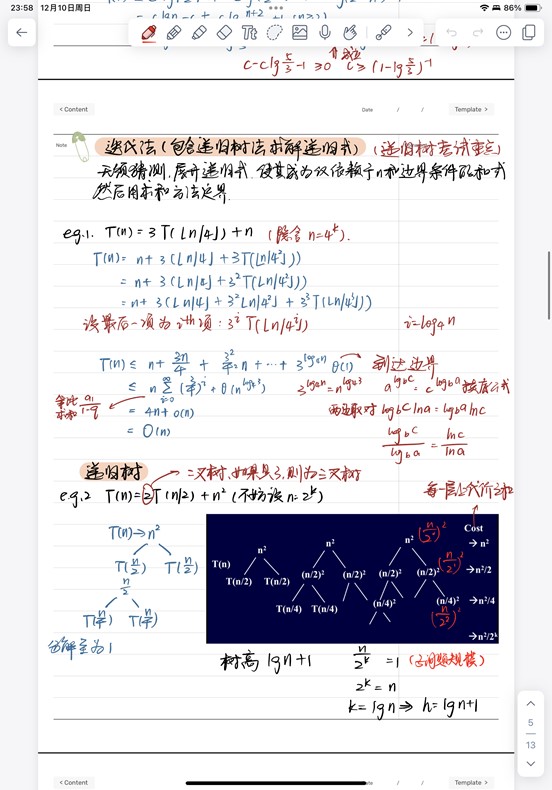 23:58 12月10日周日
86%
c-clg5/3-1≥0 c≥(1-lg5/3)⁻¹
< Content
Date / /
Template >
Note
迭代法(包含递归树法求解递归式) (递归树考试重点)
无须猜测,展开递归式,使其成为仅依赖于n和边界条件的和式
然后用求和方法定界.
e.g.1. T(n) = 3T(⌊n/4⌋) + n (隐含 n=4ᵏ).
T(n) = n + 3(⌊n/4⌋ + 3T(⌊n/4²⌋))
= n + 3⌊n/4⌋ + 3²T(⌊n/4²⌋)
= n + 3(⌊n/4⌋ + 3²⌊n/4²⌋ + 3³T(⌊n/4³⌋))
该最后一项为 iᵗʰ项: 3ⁱT(⌊n/4ⁱ⌋) i=log₄n
T(n) ≤ n + 3n/4 + 3²/4²n + ... + 3^(log₄n) θ(1) 到达边界
≤ n Σ(i=0→∞) (3/4)ⁱ + θ(n^(log₄3)) 3^(log₄n) = n^(log₄3) a^(log_b c) = c^(log_b a) 换底公式
等比求和 a₁/1-q
= 4n + o(n) 两边取对 log_b c ln a = log_b a ln c
= O(n) log_b c / log_b a = ln c / ln a
递归树 二叉树,如果是3,则为三叉树
e.g.2 T(n) = 2T(n/2) + n² (不妨设 n=2ᵏ) 每一层上代价之和
T(n)→n²
T(n/2) T(n/2)
n/2
T(n/4) T(n/4)
分解至为1
T(n) n² n² n² (n/2⁰)² Cost → n²
T(n/2) T(n/2) (n/2)² (n/2)² (n/2)² (n/2)² (n/2¹)² → n²/2
T(n/4) T(n/4) (n/4)² (n/4)² (n/2²)² → n²/4
→ n²/2ᵏ
树高 lgn+1 n/2ᵏ = 1 (子问题规模)
2ᵏ = n
k = lgn ⇒ h = lgn+1
5
13
< Content
/ /
Template >